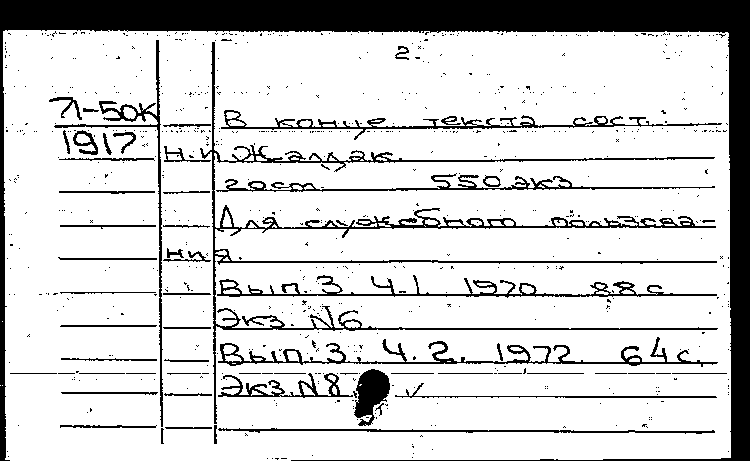 2.
71-50к
1917
В конце текста сост.:
Н.И. Жалдак.
2ост. 550 экз.
Для служебного пользова-
ния.
Вып. 3. Ч.1. 1970. 88 с.
Экз. N6.
Вып. 3. Ч.2. 1972. 64 с.
Экз. N8